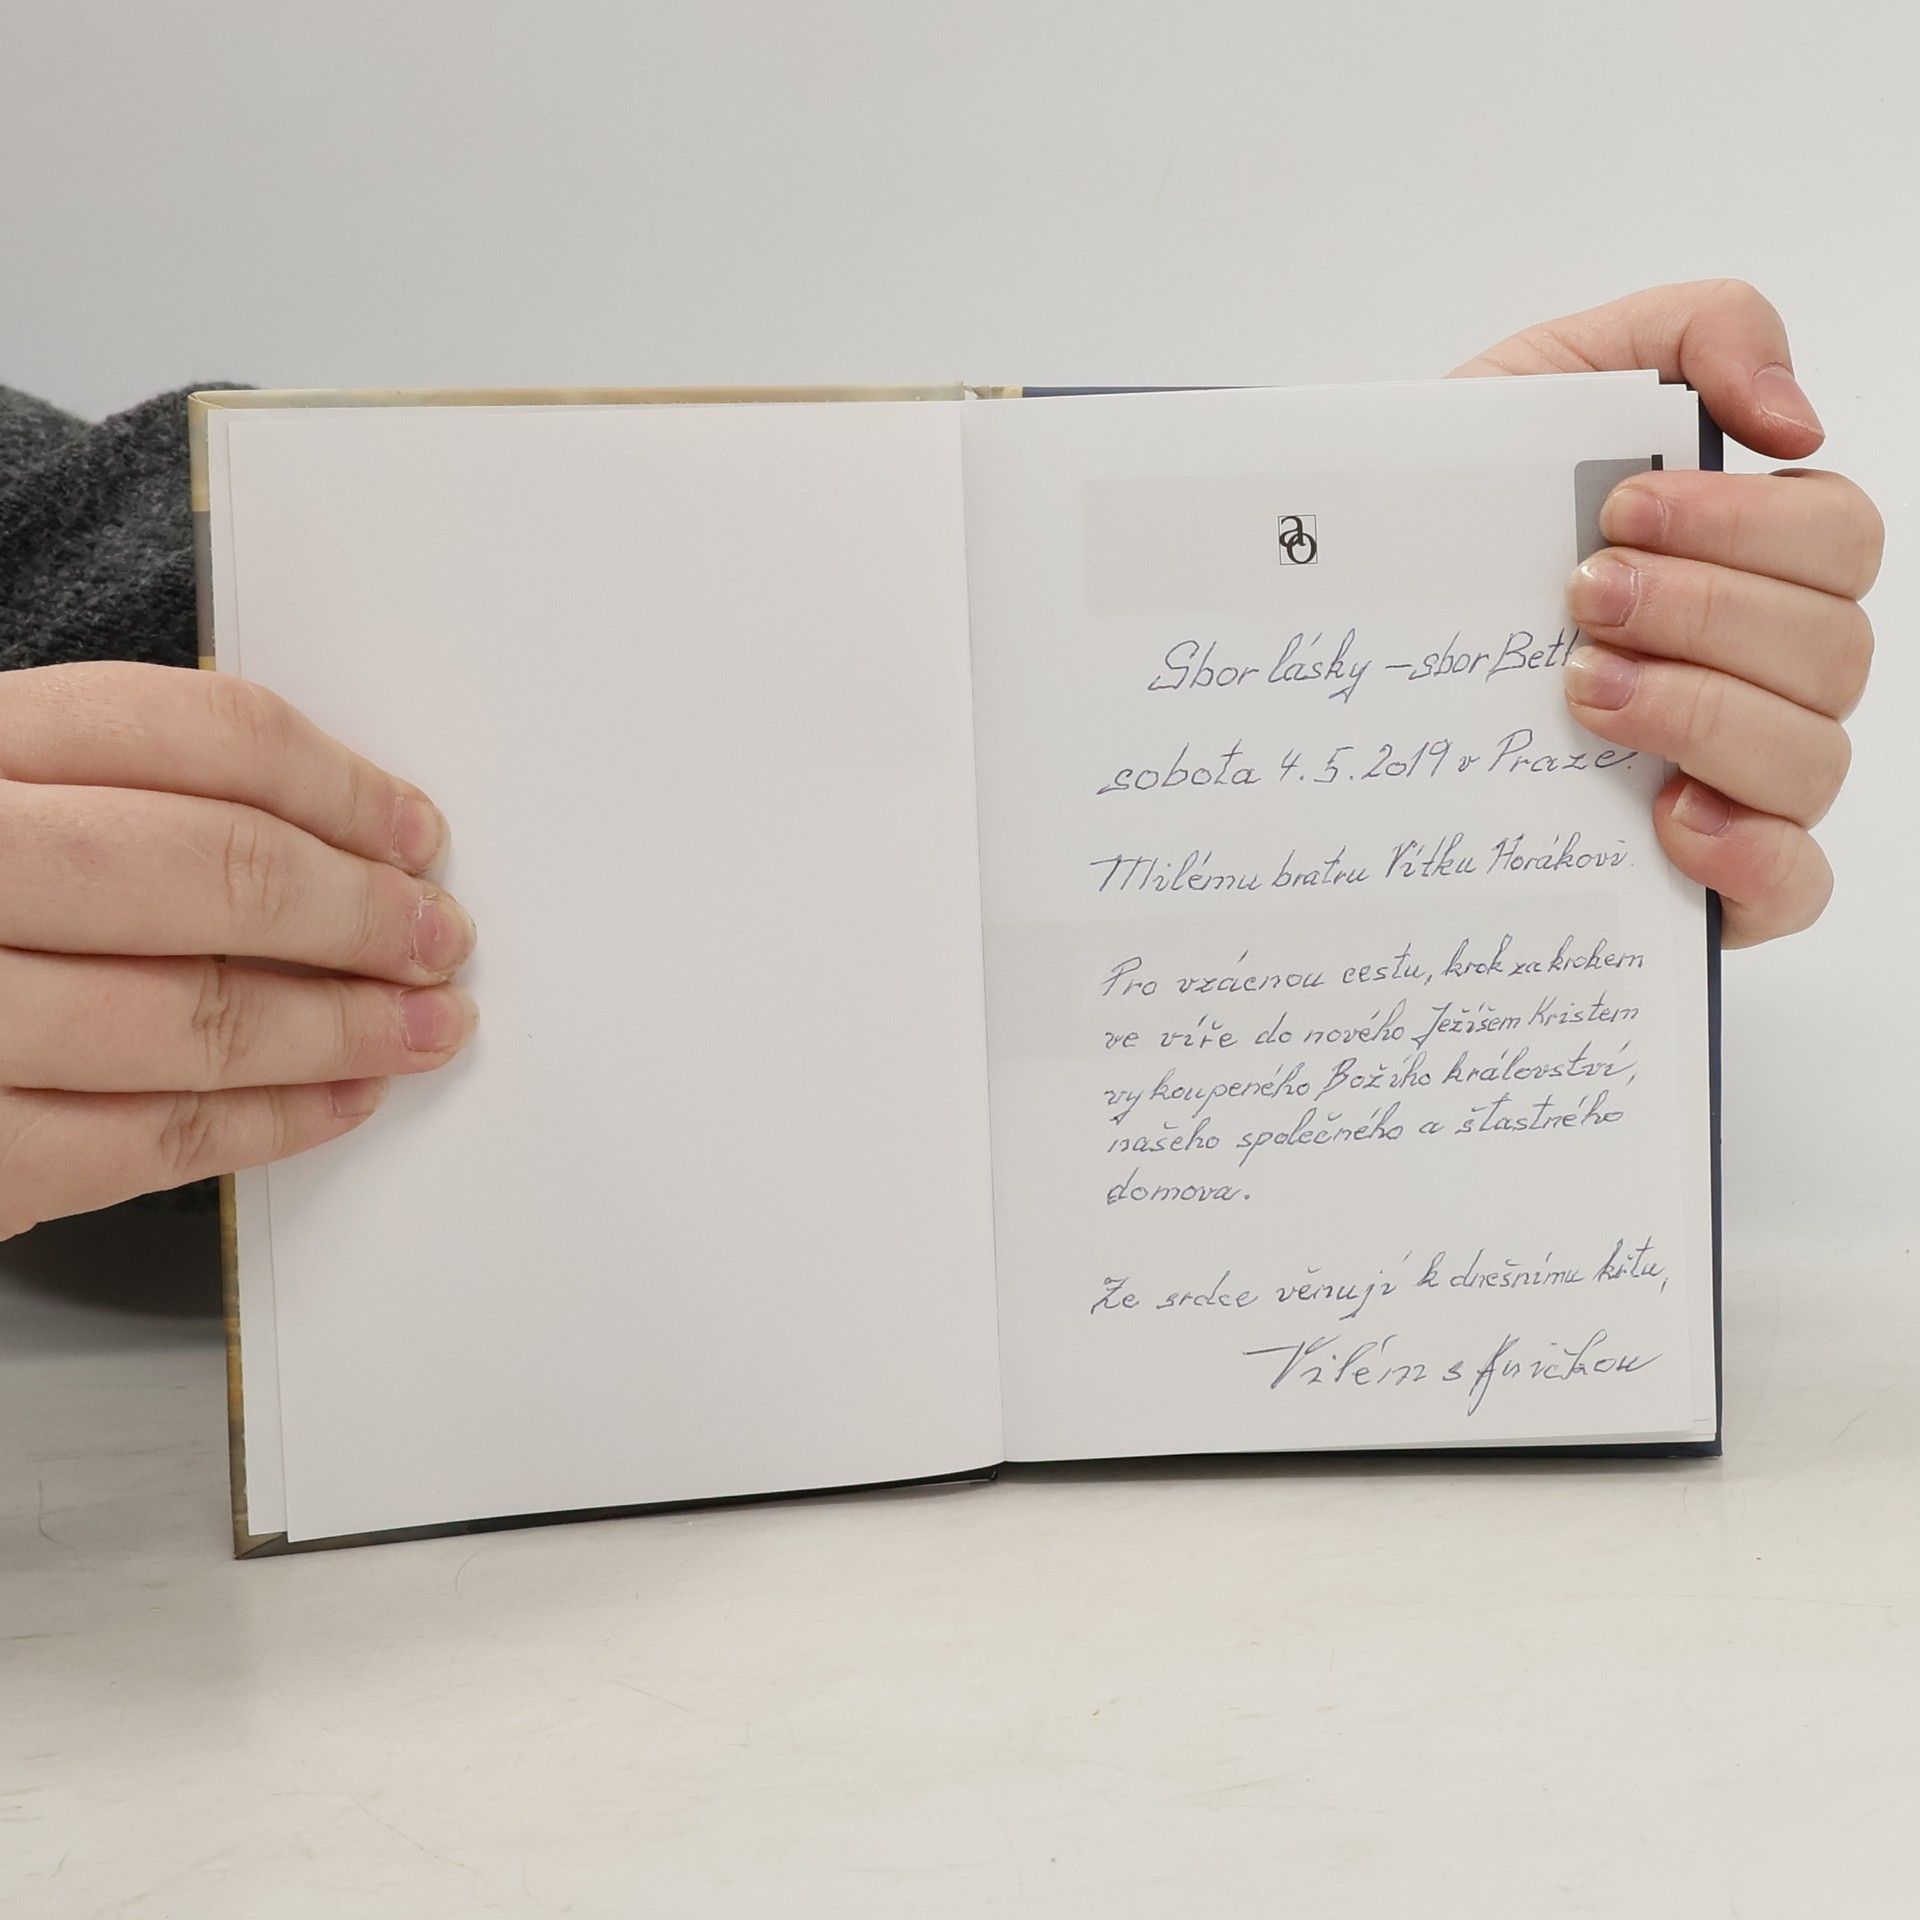 ao
Sbor lásky – sbor Betl
sobota 4. 5. 2019 v Praze.
Milému bratru Vítku Horákovi.
Pro vzácnou cestu, krok za krokem
ve víře do nového Ježíšem Kristem
vykoupeného Božího království,
našeho společného a šťastného
domova.
Ze srdce věnují k dnešnímu křtu,
Vilém s Aničkou